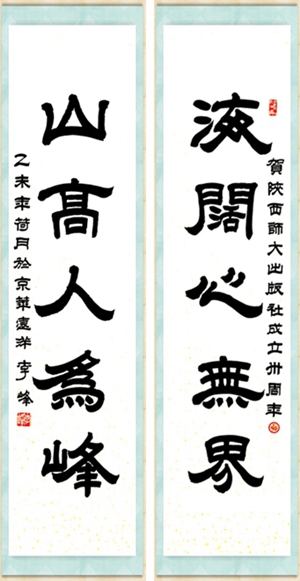 賀陝西師大出版社成立卅周年
海闊心無界
山髙人為峰
乙未年荷月於京華遠洋李峰